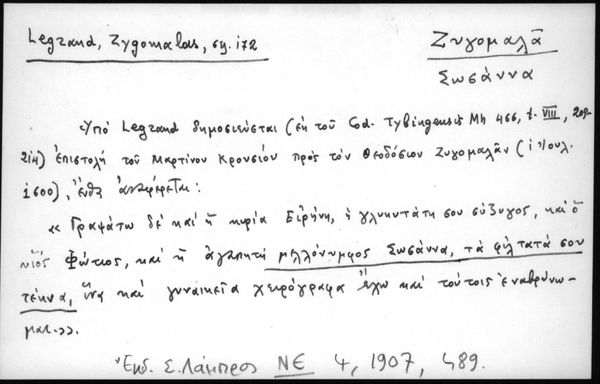 Legrand, Zygomalas, σχ. 172
Ζυγομαλᾶ
Σωσάννα
Ὑπό Legrand δημοσιεύεται (ἐκ τοῦ Cod. Tybingensis Mh 466, t. VIII, 209-
214) ἐπιστολή τοῦ Μαρτίνου Κρουσίου πρός τόν Θεοδόσιον Ζυγομαλᾶν (1 Ἰουλ.
1600), ἔνθα ἀναφέρεται:
« Γραψάτω δέ καί ἡ κυρία Εἰρήνη, ἡ γλυκυτάτη σου σύζυγος, καί ὁ
υἱός Φώτιος, καί ἡ ἀγαπητή μελλόνυμφος Σωσάννα, τά φίλτατά σου
τέκνα, ἵνα καί γυναικεῖα χειρόγραφα ἔχω καί τούτοις ἐναβρύνω-
μαι.».
Ἐκδ. Σ. Λάμπρος ΝΕ 4, 1907, 489.